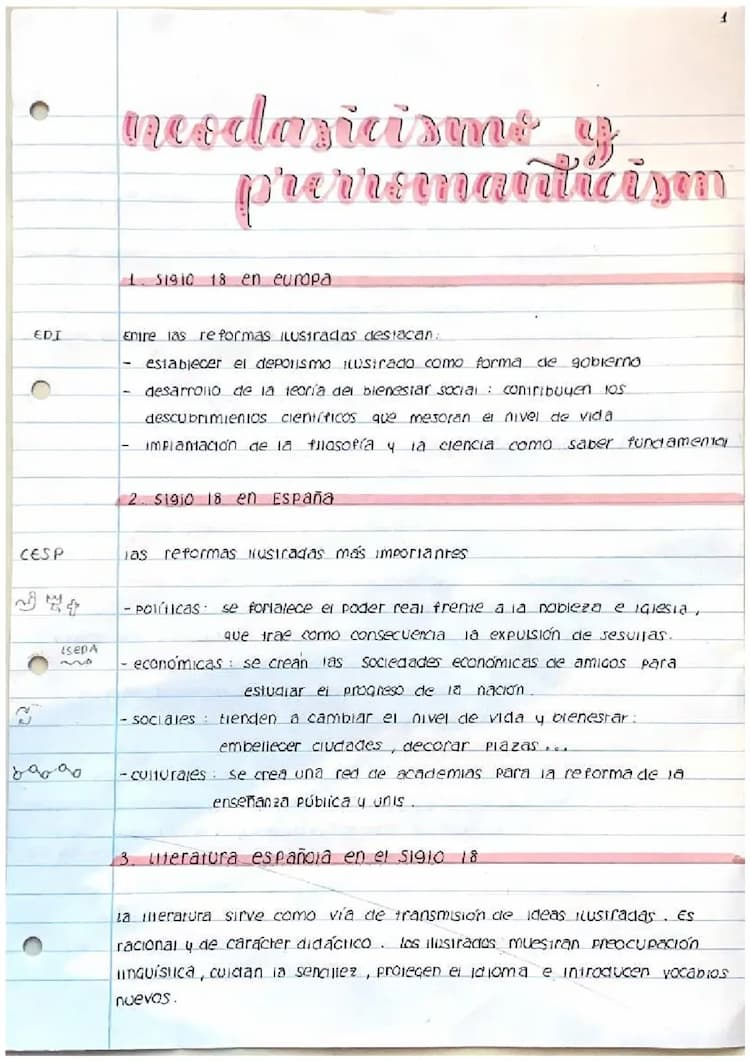 1
neoclasicismo y
prerromanticism
1. Siglo 18 en europa
EDI
Entre las reformas ilustradas destacan:
- establecer el depotismo ilustrado como forma de gobierno
- desarrollo de la teoría del bienestar social : contribuyen los
descubrimientos científicos que mejoran el nivel de vida
- implantación de la filosofía y la ciencia como saber fundamental
2. Siglo 18 en España
CESP
las reformas ilustradas más importantes
- políticas: se fortalece el poder real frente a la nobleza e iglesia,
que trae como consecuencia la expulsión de jesuitas.
LSEDA
- económicas : se crean las sociedades económicas de amigos para
estudiar el progreso de la nación.
- sociales : tienden a cambiar el nivel de vida y bienestar:
embellecer ciudades, decorar plazas ...
- culturales : se crea una red de academias para la reforma de la
enseñanza pública y unis.
3. Literatura española en el siglo 18
la literatura sirve como vía de transmisión de ideas ilustradas. Es
racional y de carácter didáctico. los ilustrados muestran preocupación
linguística, cuidan la sencillez, protegen el idioma e introducen vocablos
nuevos.